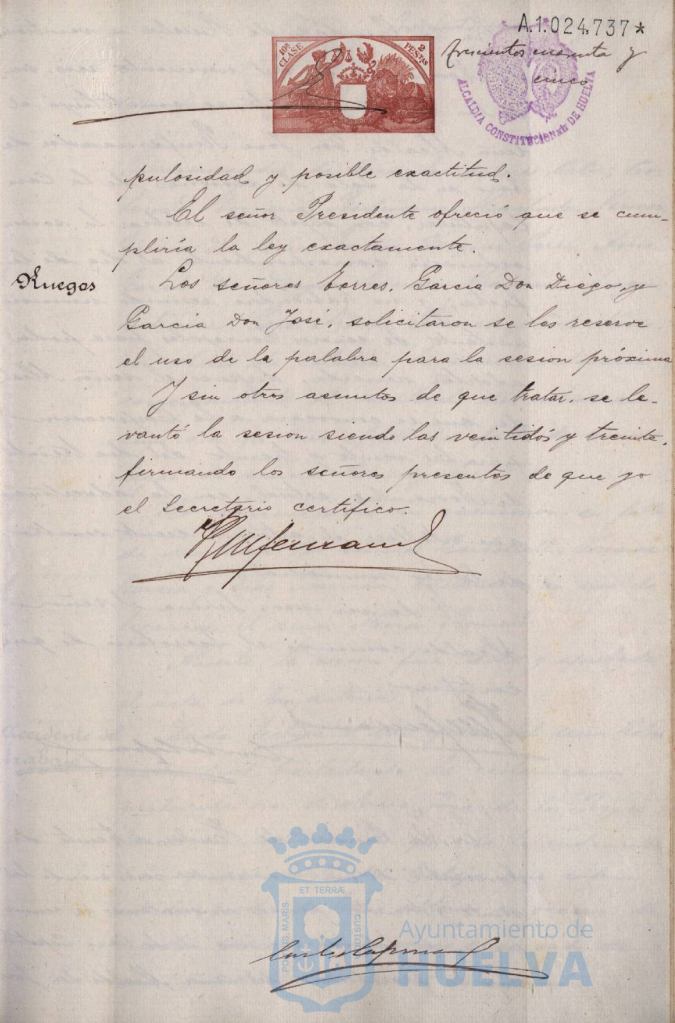 A.1.024.737*
10ª CLASE
2 PESTAS
trescientos cuarenta y
cinco
ALCALDIA CONSTITUCIONAL DE HUELVA
pulosidad y posible exactitud.
El señor Presidente ofreció que se cum-
pliría la ley exactamente.
Ruegos
Los señores Torres, García Don Diego, y
García Don José, solicitaron se les reserve
el uso de la palabra para la sesion próxima
Y sin otros asuntos de que tratar, se le-
vantó la sesion siendo las veintidós y treinta,
firmando los señores presentes de que yo
el Secretario certifico.
ET TERRÆ
PORTUS MARIS
CUSTODIA
Ayuntamiento de
HUELVA